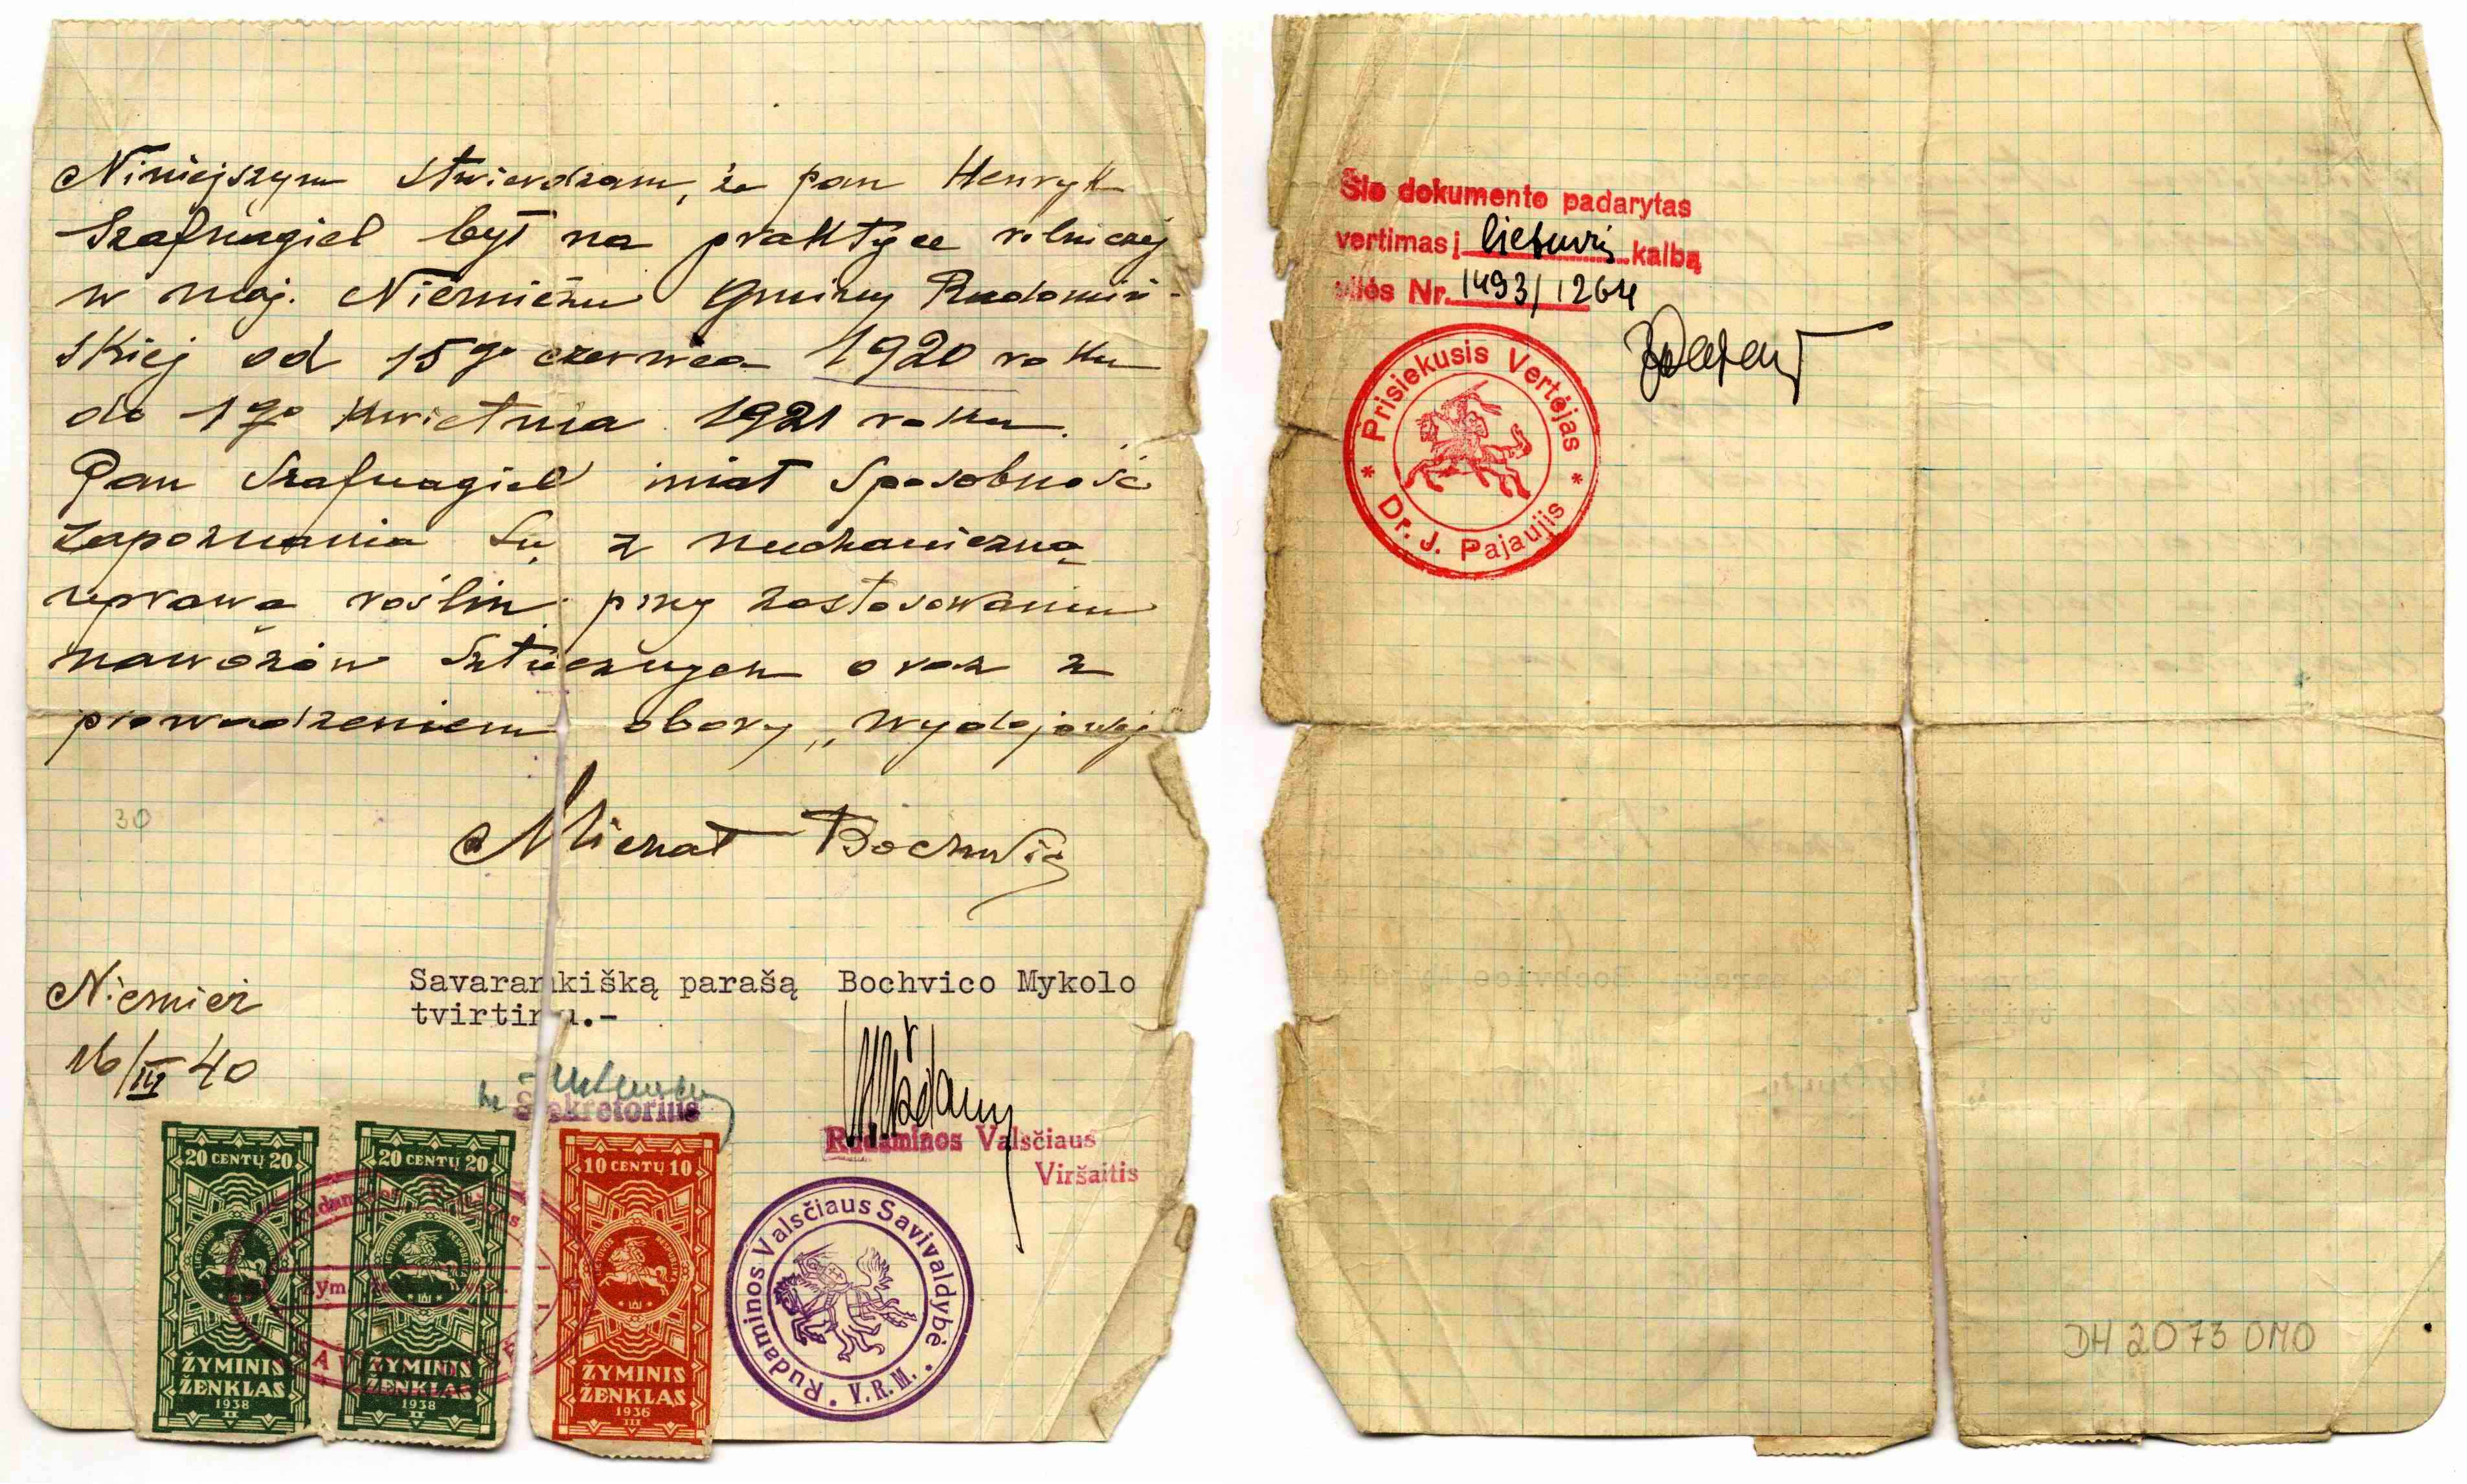 Niniejszym stwierdzam, że pan Henryk
Szafnagiel był na praktyce rolniczej
w maj. Niemieżu gminy Rudomiń-
skiej od 15go czerwca 1920 roku
do 1go kwietnia 1921 roku.
Pan Szafnagiel miał sposobność
zapoznania się z mechaniczną
uprawą roślin przy zastosowaniu
nawozów sztucznych oraz z
prowadzeniem obory „wydojowej"
Michał Bochwic
30
Niemież
16/III 40
Savarankišką parašą Bochvico Mykolo
tvirtinu.-
Sekretorius
Rudaminos Valsčiaus
Viršaitis
20 CENTŲ 20
ŽYMINIS
ŽENKLAS
1938
II
20 CENTŲ 20
ŽYMINIS
ŽENKLAS
1938
II
10 CENTŲ 10
ŽYMINIS
ŽENKLAS
1936
III
Rudaminos Valsčiaus Savivaldybė
V.R.M.
Šio dokumento padarytas
vertimas į lietuvių kalbą
Nr. 1493/1264
Prisiekusis Vertėjas
Dr. J. Pajaujis
DH 2073 OMO